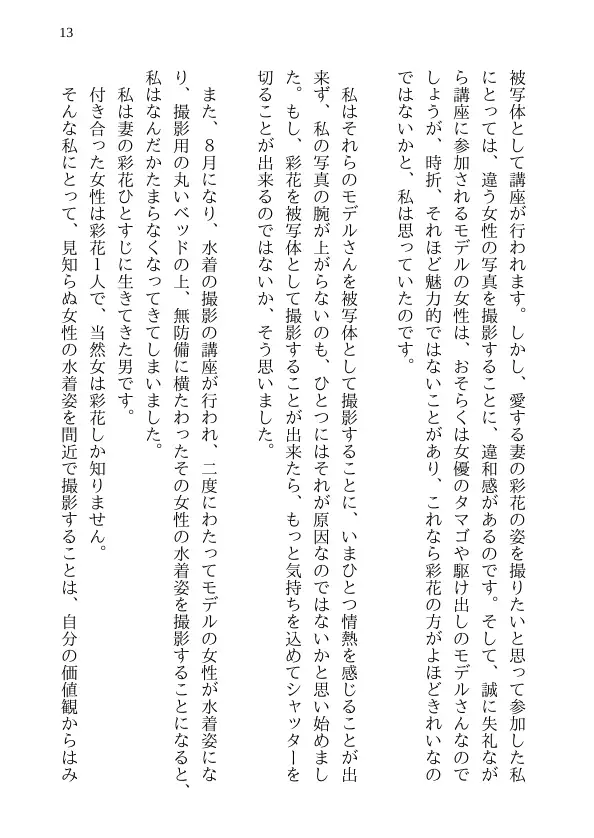 13
被写体として講座が行われます。しかし、愛する妻の彩花の姿を撮りたいと思って参加した私
にとっては、違う女性の写真を撮影することに、違和感があるのです。そして、誠に失礼なが
ら講座に参加されるモデルの女性は、おそらくは女優のタマゴや駆け出しのモデルさんなので
しょうが、時折、それほど魅力的ではないことがあり、これなら彩花の方がよほどきれいなの
ではないかと、私は思っていたのです。
私はそれらのモデルさんを被写体として撮影することに、いまひとつ情熱を感じることが出
来ず、私の写真の腕が上がらないのも、ひとつにはそれが原因なのではないかと思い始めまし
た。もし、彩花を被写体として撮影することが出来たら、もっと気持ちを込めてシャッターを
切ることが出来るのではないか、そう思いました。
また、８月になり、水着の撮影の講座が行われ、二度にわたってモデルの女性が水着姿にな
り、撮影用の丸いベッドの上、無防備に横たわったその女性の水着姿を撮影することになると、
私はなんだかたまらなくなってきてしまいました。
私は妻の彩花ひとすじに生きてきた男です。
付き合った女性は彩花１人で、当然女は彩花しか知りません。
そんな私にとって、見知らぬ女性の水着姿を間近で撮影することは、自分の価値観からはみ